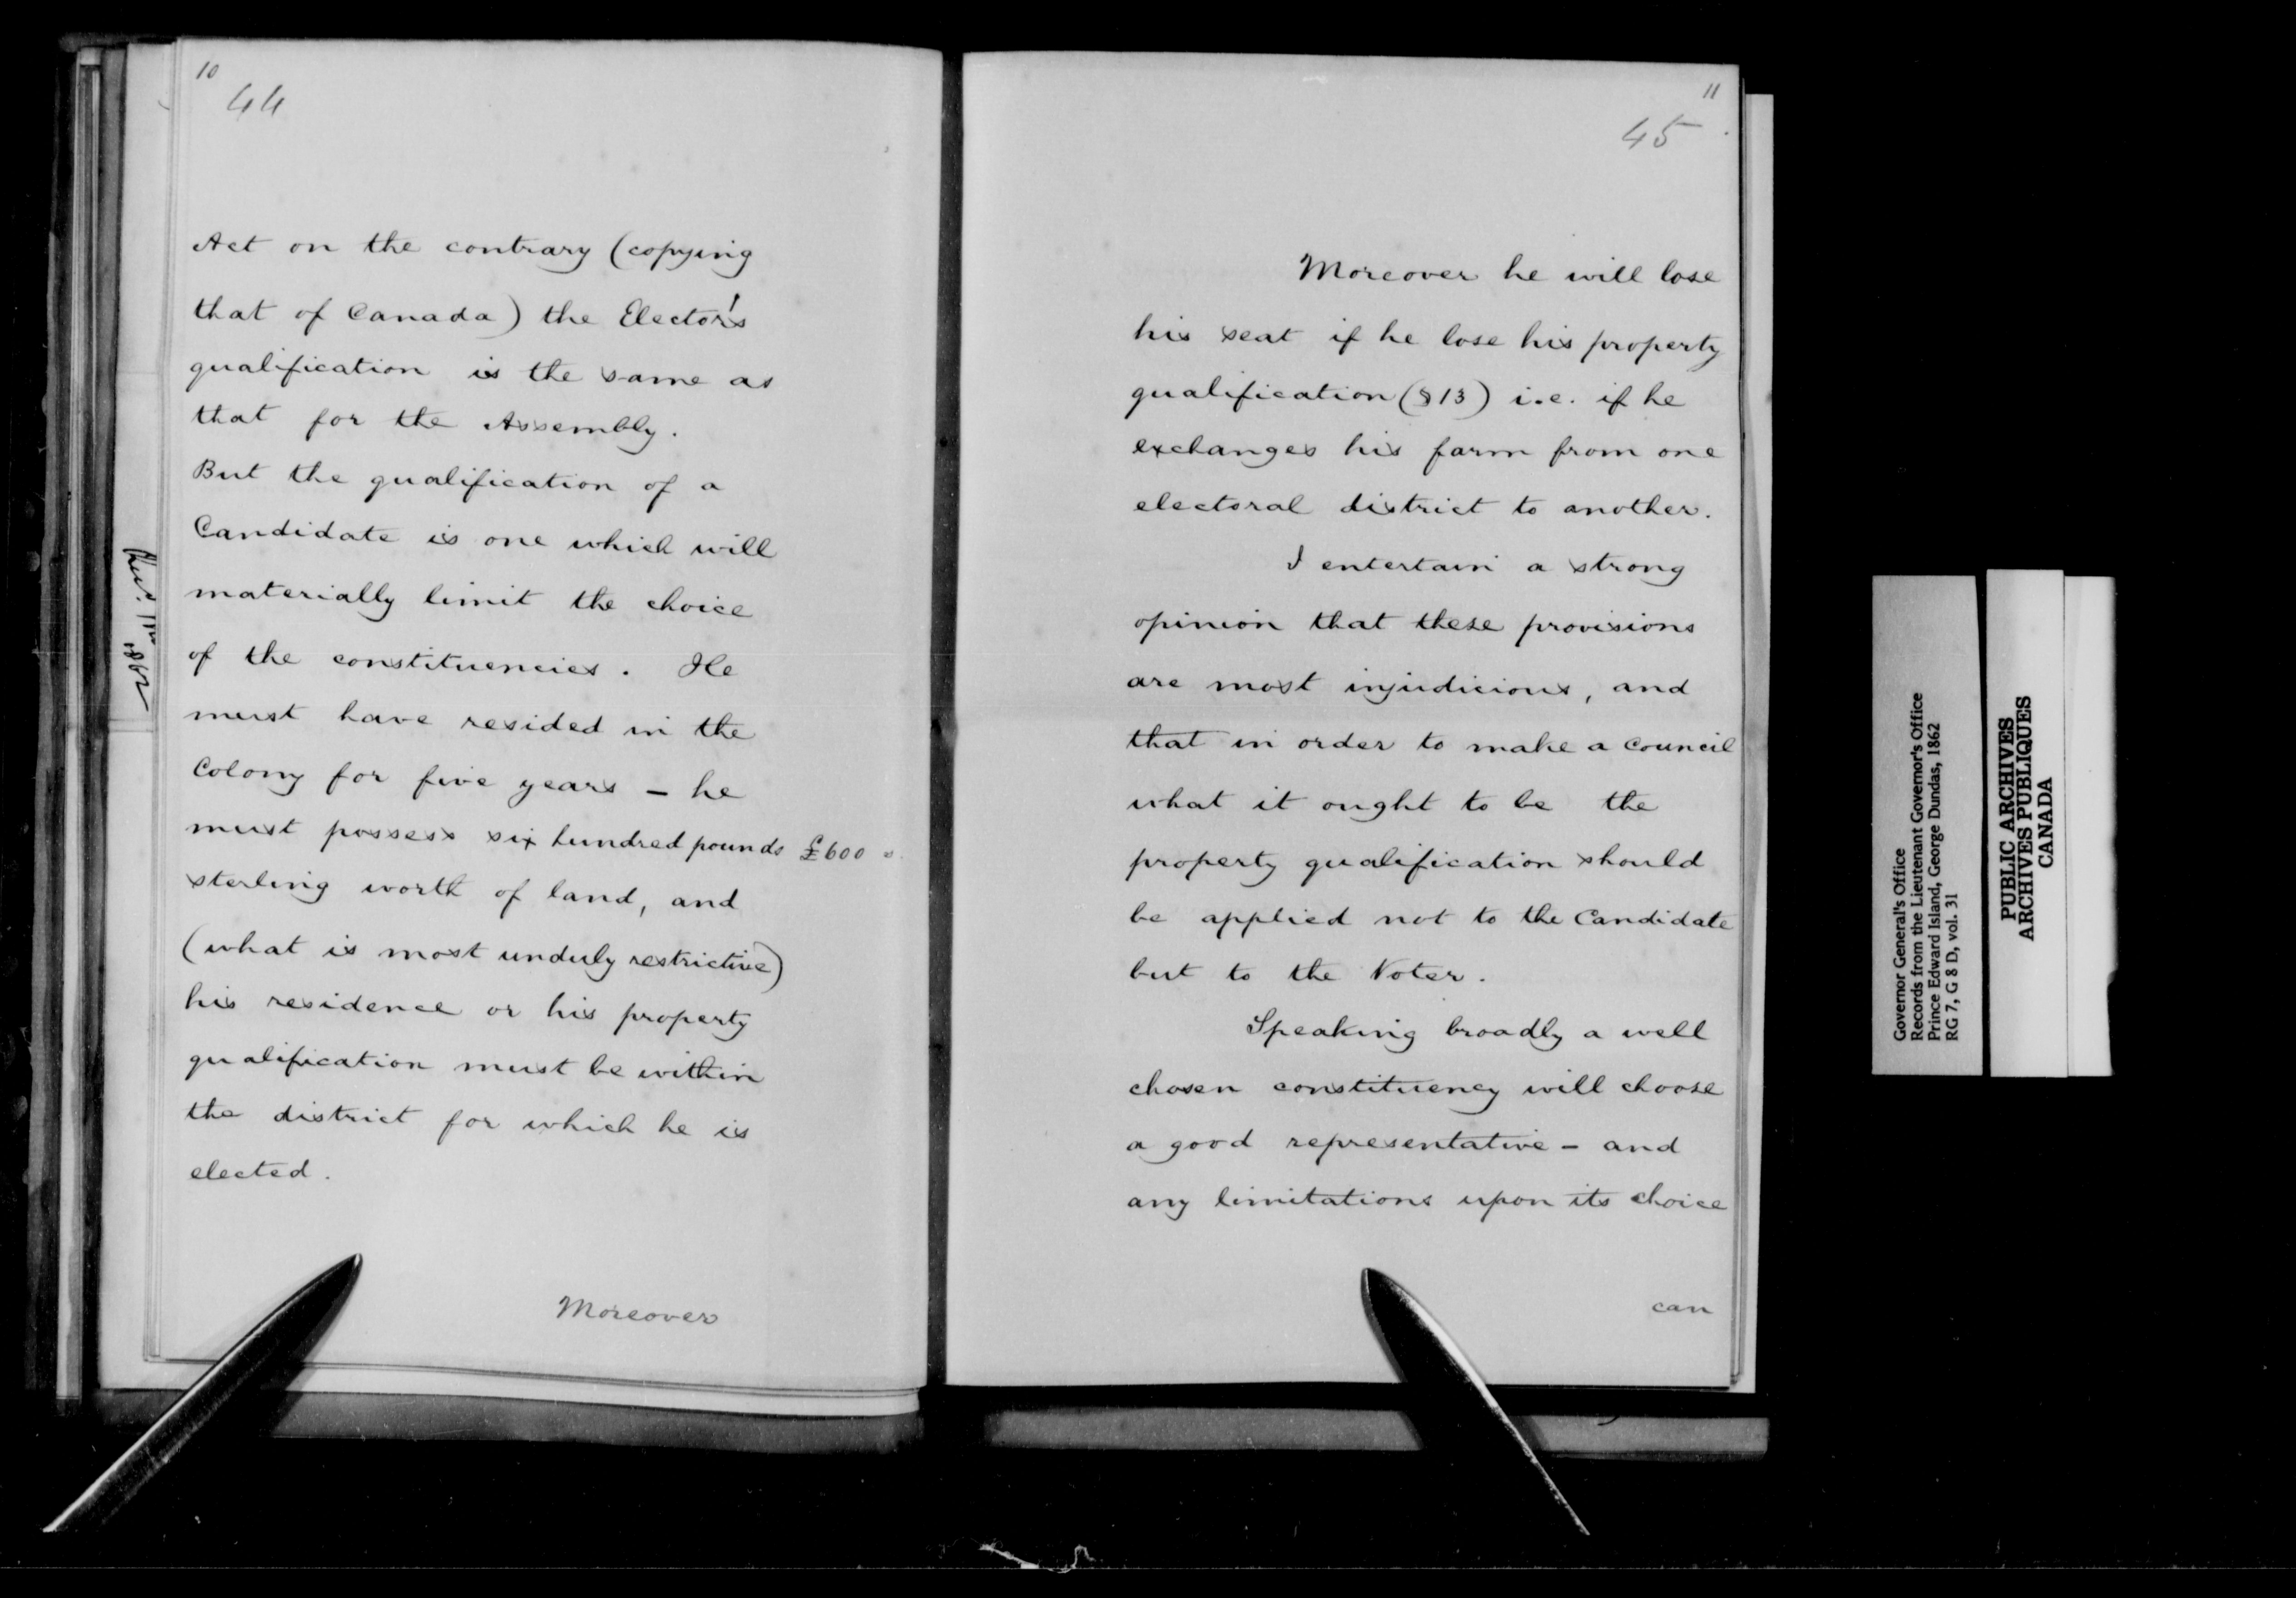 10
44
Act on the contrary (copying
that of Canada) the Elector's
qualification is the same as
that for the Assembly.
But the qualification of a
Candidate is one which will
materially limit the choice
of the constituencies. He
must have resided in the
Colony for five years – he
must possess six hundred pounds £600
sterling worth of land, and
(what is most unduly restrictive)
his residence or his property
qualification must be within
the district for which he is
elected.
Moreover
1862
11
45
Moreover he will lose
his seat if he lose his property
qualification (§13) i.e. if he
exchanges his farm from one
electoral district to another.
I entertain a strong
opinion that these provisions
are most injudicious, and
that in order to make a Council
what it ought to be the
property qualification should
be applied not to the Candidate
but to the Voter.
Speaking broadly a well
chosen constituency will choose
a good representative – and
any limitations upon its choice
can
Governor General's Office
Records from the Lieutenant Governor's Office
Prince Edward Island, George Dundas, 1862
RG 7, G 8 D, vol. 31
PUBLIC ARCHIVES
ARCHIVES PUBLIQUES
CANADA